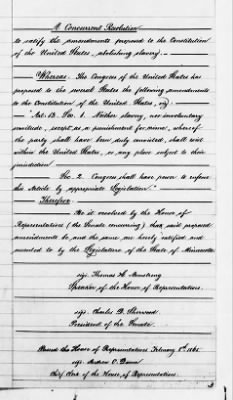 A Concurrent Resolution
to ratify the amendments proposed to the Constitution
of the United States, abolishing slavery.
Whereas. The Congress of the United States has
proposed to the several States the following amendments
to the Constitution of the United States, viz:
"Art. 13. Sec. 1. Neither slavery, nor involuntary
servitude, except as a punishment for crime, whereof
the party shall have been duly convicted, shall exist
within the United States, or any place subject to their
jurisdiction
Sec. 2. Congress shall have power to enforce
this Article by appropriate Legislation."
Therefore
Be it resolved by the House of
Representatives (the Senate concurring) that said proposed
amendments be, and the same are hereby ratified and
assented to by the Legislature of the State of Minnesota.
sig. Thomas H. Armstrong
Speaker of the House of Representatives.
sig. Charles D. Sherwood
President of the Senate.
Passed the House of Representatives February 1865
sig. Andrew C. Dunn
Chief Clerk of the House of Representatives.